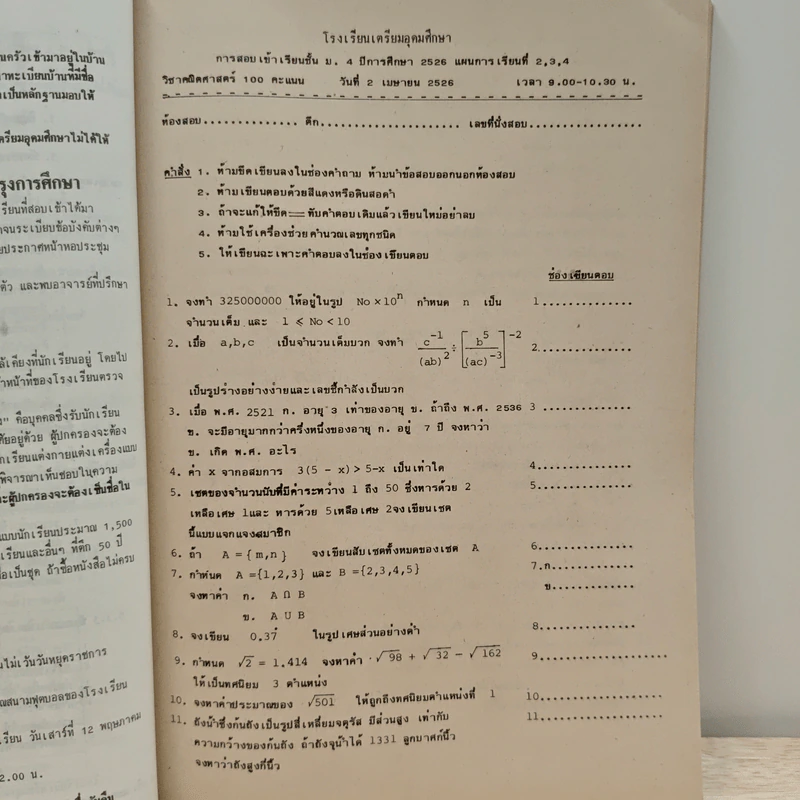 นครัวเข้ามาอยู่ในบ้าน
าทะเบียนบ้านที่มีชื่อ
งเป็นหลักฐานมอบให้
ตรียมอุดมศึกษาไม่ได้ให้
รุงการศึกษา
เรียนที่สอบเข้าได้มา
าจนระเบียบข้อบังคับต่างๆ
ยประกาศหน้าหอประชุม
ตัว และพบอาจารย์ที่ปรึกษา
ล้เคียงที่นักเรียนอยู่ โดยไป
าหน้าที่ของโรงเรียนตรวจ
ง" คือบุคคลซึ่งรับนักเรียน
ศัยอยู่ด้วย ผู้ปกครองจะต้อง
ักเรียนแต่งกายแต่งเครื่องแบบ
พิจารณาเห็นชอบในความ
ะผู้ปกครองจะต้องเซ็นชื่อใน
แบบนักเรียนประมาณ 1,500
เรียนและอื่นๆ ที่ตึก 50 ปี
ื่อเป็นชุด ถ้าซื้อหนังสือไม่ครบ
นไม่เว้นวันหยุดราชการ
ณสนามฟุตบอลของโรงเรียน
เรียน วันเสาร์ที่ 12 พฤษภาคม
2.00 น.
โรงเรียนเตรียมอุดมศึกษา
การสอบเข้าเรียนชั้น ม. 4 ปีการศึกษา 2526 แผนการเรียนที่ 2,3,4
วิชาคณิตศาสตร์ 100 คะแนน วันที่ 2 เมษายน 2526 เวลา 9.00-10.30 น.
ห้องสอบ.............. ตึก..................... เลขที่นั่งสอบ.................
คำสั่ง 1. ห้ามขีดเขียนลงในช่องคำถาม ห้ามนำข้อสอบออกนอกห้องสอบ
2. ห้ามเขียนตอบด้วยสีแดงหรือดินสอดำ
3. ถ้าจะแก้ให้ขีด══ทับคำตอบเดิมแล้วเขียนใหม่อย่าลบ
4. ห้ามใช้เครื่องช่วยคำนวณเลขทุกชนิด
5. ให้เขียนฉะเพาะคำตอบลงในช่องเขียนตอบ
ช่องเขียนตอบ
1. จงทำ 325000000 ให้อยู่ในรูป No×10ⁿ กำหนด n เป็น 1..............
จำนวนเต็ม และ 1 ⩽ No<10
2. เมื่อ a,b,c เป็นจำนวนเต็มบวก จงทำ c⁻¹/(ab)² ÷ [b⁵/(ac)⁻³]⁻² 2..............
เป็นรูปร่างอย่างง่ายและเลขชี้กำลังเป็นบวก
3. เมื่อ พ.ศ. 2521 ก. อายุ 3 เท่าของอายุ ข. ถ้าถึง พ.ศ. 2536 3 ..............
ข. จะมีอายุมากกว่าครึ่งหนึ่งของอายุ ก. อยู่ 7 ปี จงหาว่า
ข. เกิด พ.ศ. อะไร
4. ค่า x จากอสมการ 3(5 - x)> 5-x เป็นเท่าใด 4..............
5. เซตของจำนวนนับที่มีค่าระหว่าง 1 ถึง 50 ซึ่งหารด้วย 2 5..............
เหลือเศษ 1และ หารด้วย 5เหลือเศษ 2จงเขียนเซต
นี้แบบแจกแจงสมาชิก
6. ถ้า A ={m,n} จงเขียนสับเซตทั้งหมดของเซต A 6..............
7. กำหนด A ={1,2,3} และ B ={2,3,4,5} 7.ก.............
จงหาค่า ก. A ∩ B ข.............
ข. A ∪ B
8. จงเขียน 0.37̇ ในรูปเศษส่วนอย่างต่ำ 8..............
9. กำหนด √2 = 1.414 จงหาค่า √98 + √32 - √162 9...................
ให้เป็นทศนิยม 3 ตำแหน่ง
10. จงหาค่าประมาณของ √501 ให้ถูกถึงทศนิยมตำแหน่งที่ 1 10..............
11. ถังน้ำซึ่งก้นถังเป็นรูปสี่เหลี่ยมจตุรัส มีส่วนสูง เท่ากับ 11..............
ความกว้างของก้นถัง ถ้าถังจุน้ำได้ 1331 ลูกบาศก์นิ้ว
จงหาว่าถังสูงกี่นิ้ว